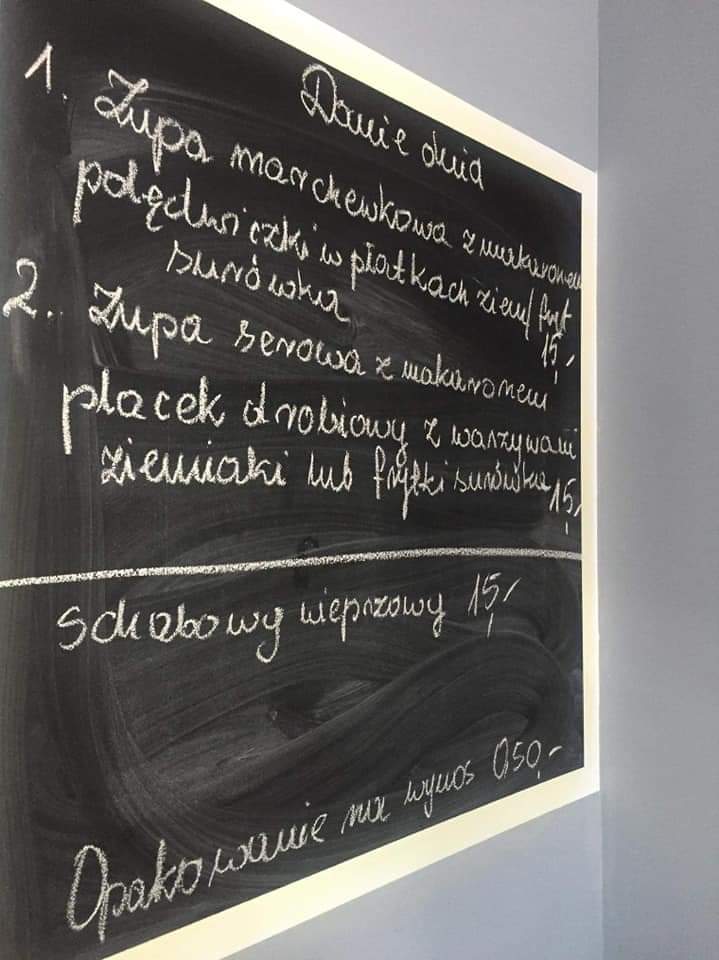 Danie dnia
1. Zupa marchewkowa z makaronem
polędwiczki w płatkach ziem/fryt
surówka 15,-
2. Zupa serowa z makaronem
placek drobiowy z warzywami
ziemniaki lub frytki surówka 15,-
schabowy wieprzowy 15,-
Opakowanie na wynos 0,50,-